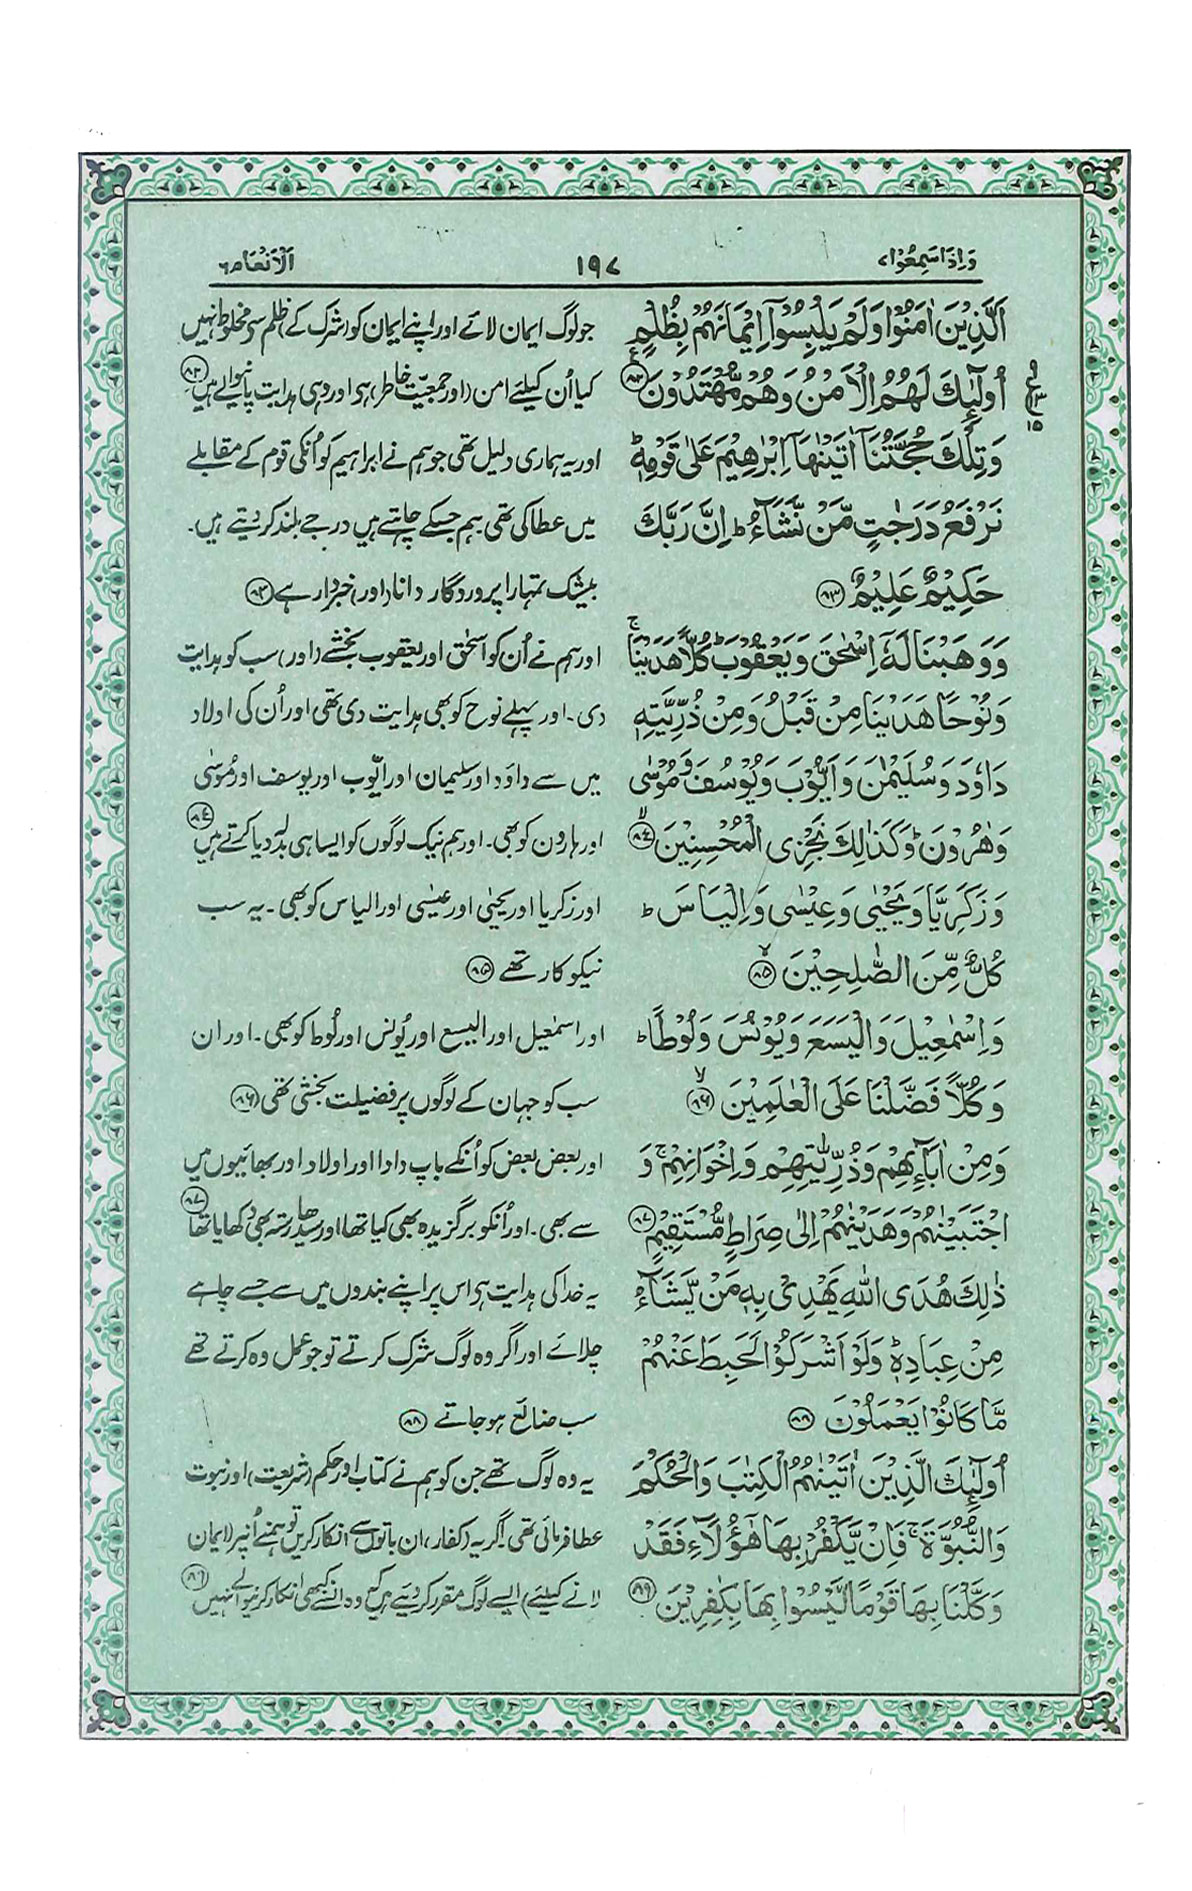 وَاِذَا سَمِعُوْا ۷
۱۹۷
اَلْاَنْعَام ۶
اَلَّذِيْنَ اٰمَنُوْا وَلَمْ يَلْبِسُوْٓا اِيْمَانَهُمْ بِظُلْمٍ
اُولٰٓئِكَ لَهُمُ الْاَمْنُ وَهُمْ مُّهْتَدُوْنَ ۸۲
وَتِلْكَ حُجَّتُنَآ اٰتَيْنٰهَآ اِبْرٰهِيْمَ عَلٰى قَوْمِهٖ ؕ
نَرْفَعُ دَرَجٰتٍ مَّنْ نَّشَآءُ ؕ اِنَّ رَبَّكَ
حَكِيْمٌ عَلِيْمٌ ۸۳
وَوَهَبْنَا لَهٗٓ اِسْحٰقَ وَيَعْقُوْبَ ؕ كُلًّا هَدَيْنَا ۚ
وَنُوْحًا هَدَيْنَا مِنْ قَبْلُ وَمِنْ ذُرِّيَّتِهٖ
دَاوٗدَ وَسُلَيْمٰنَ وَاَيُّوْبَ وَيُوْسُفَ وَمُوْسٰى
وَهٰرُوْنَ ؕ وَكَذٰلِكَ نَجْزِى الْمُحْسِنِيْنَ ۙ ۸۴
وَزَكَرِيَّا وَيَحْيٰى وَعِيْسٰى وَاِلْيَاسَ ؕ
كُلٌّ مِّنَ الصّٰلِحِيْنَ ۙ ۸۵
وَاِسْمٰعِيْلَ وَالْيَسَعَ وَيُوْنُسَ وَلُوْطًا ؕ
وَكُلًّا فَضَّلْنَا عَلَى الْعٰلَمِيْنَ ۙ ۸۶
وَمِنْ اٰبَآئِهِمْ وَذُرِّيّٰتِهِمْ وَاِخْوَانِهِمْ ۚ وَ
اجْتَبَيْنٰهُمْ وَهَدَيْنٰهُمْ اِلٰى صِرَاطٍ مُّسْتَقِيْمٍ ۸۷
ذٰلِكَ هُدَى اللّٰهِ يَهْدِىْ بِهٖ مَنْ يَّشَآءُ
مِنْ عِبَادِهٖ ؕ وَلَوْ اَشْرَكُوْا لَحَبِطَ عَنْهُمْ
مَّا كَانُوْا يَعْمَلُوْنَ ۸۸
اُولٰٓئِكَ الَّذِيْنَ اٰتَيْنٰهُمُ الْكِتٰبَ وَالْحُكْمَ
وَالنُّبُوَّةَ ۚ فَاِنْ يَّكْفُرْ بِهَا هٰٓؤُلَآءِ فَقَدْ
وَكَّلْنَا بِهَا قَوْمًا لَّيْسُوْا بِهَا بِكٰفِرِيْنَ ۸۹
جو لوگ ایمان لائے اور اپنے ایمان کو (شرک کے) ظلم سے مخلوط نہیں
کیا اُن کیلئے امن (اور جمعیتِ خاطر) ہے اور وہی ہدایت پانیوالے ہیں ۸۲
اور یہ ہماری دلیل تھی جو ہم نے ابراہیم کو اُنکی قوم کے مقابلے
میں عطا کی تھی ہم جسکے چاہتے ہیں درجے بلند کر دیتے ہیں۔
بیشک تمہارا پروردگار دانا (اور) خبردار ہے ۸۳
اور ہم نے اُن کو اسحٰق اور یعقوب بخشے (اور) سب کو ہدایت
دی۔ اور پہلے نوح کو بھی ہدایت دی تھی اور اُن کی اولاد
میں سے داؤد اور سلیمان اور ایّوب اور یوسف اور مُوسٰی
اور ہارون کو بھی۔ اور ہم نیک لوگوں کو ایسا ہی بدلہ دیا کرتے ہیں ۸۴
اور زکریا اور یحیٰی اور عیسٰی اور الیاس کو بھی۔ یہ سب
نیکو کار تھے ۸۵
اور اسمٰعیل اور الیسع اور یُونس اور لُوط کو بھی۔ اور ان
سب کو جہان کے لوگوں پر فضیلت بخشی تھی ۸۶
اور بعض بعض کو اُنکے باپ دادا اور اولاد اور بھائیوں میں
سے بھی۔ اور اُنکو برگزیدہ بھی کیا تھا اور سیدھا رستہ بھی دکھایا تھا ۸۷
یہ خدا کی ہدایت ہے اس پر اپنے بندوں میں سے جسے چاہے
چلائے اور اگر وہ لوگ شرک کرتے تو جو عمل وہ کرتے تھے
سب ضائع ہو جاتے ۸۸
یہ وہ لوگ تھے جن کو ہم نے کتاب اور حکم (شریعت) اور نبوت
عطا فرمائی تھی۔ اگر یہ (کفار) ان باتوں سے انکار کریں تو ہمنے اُنپر (ایمان
لانے کیلئے) ایسے لوگ مقرر کر دیئے ہیں کہ وہ اُنسے کبھی انکار کرنیوالے نہیں ۸۹